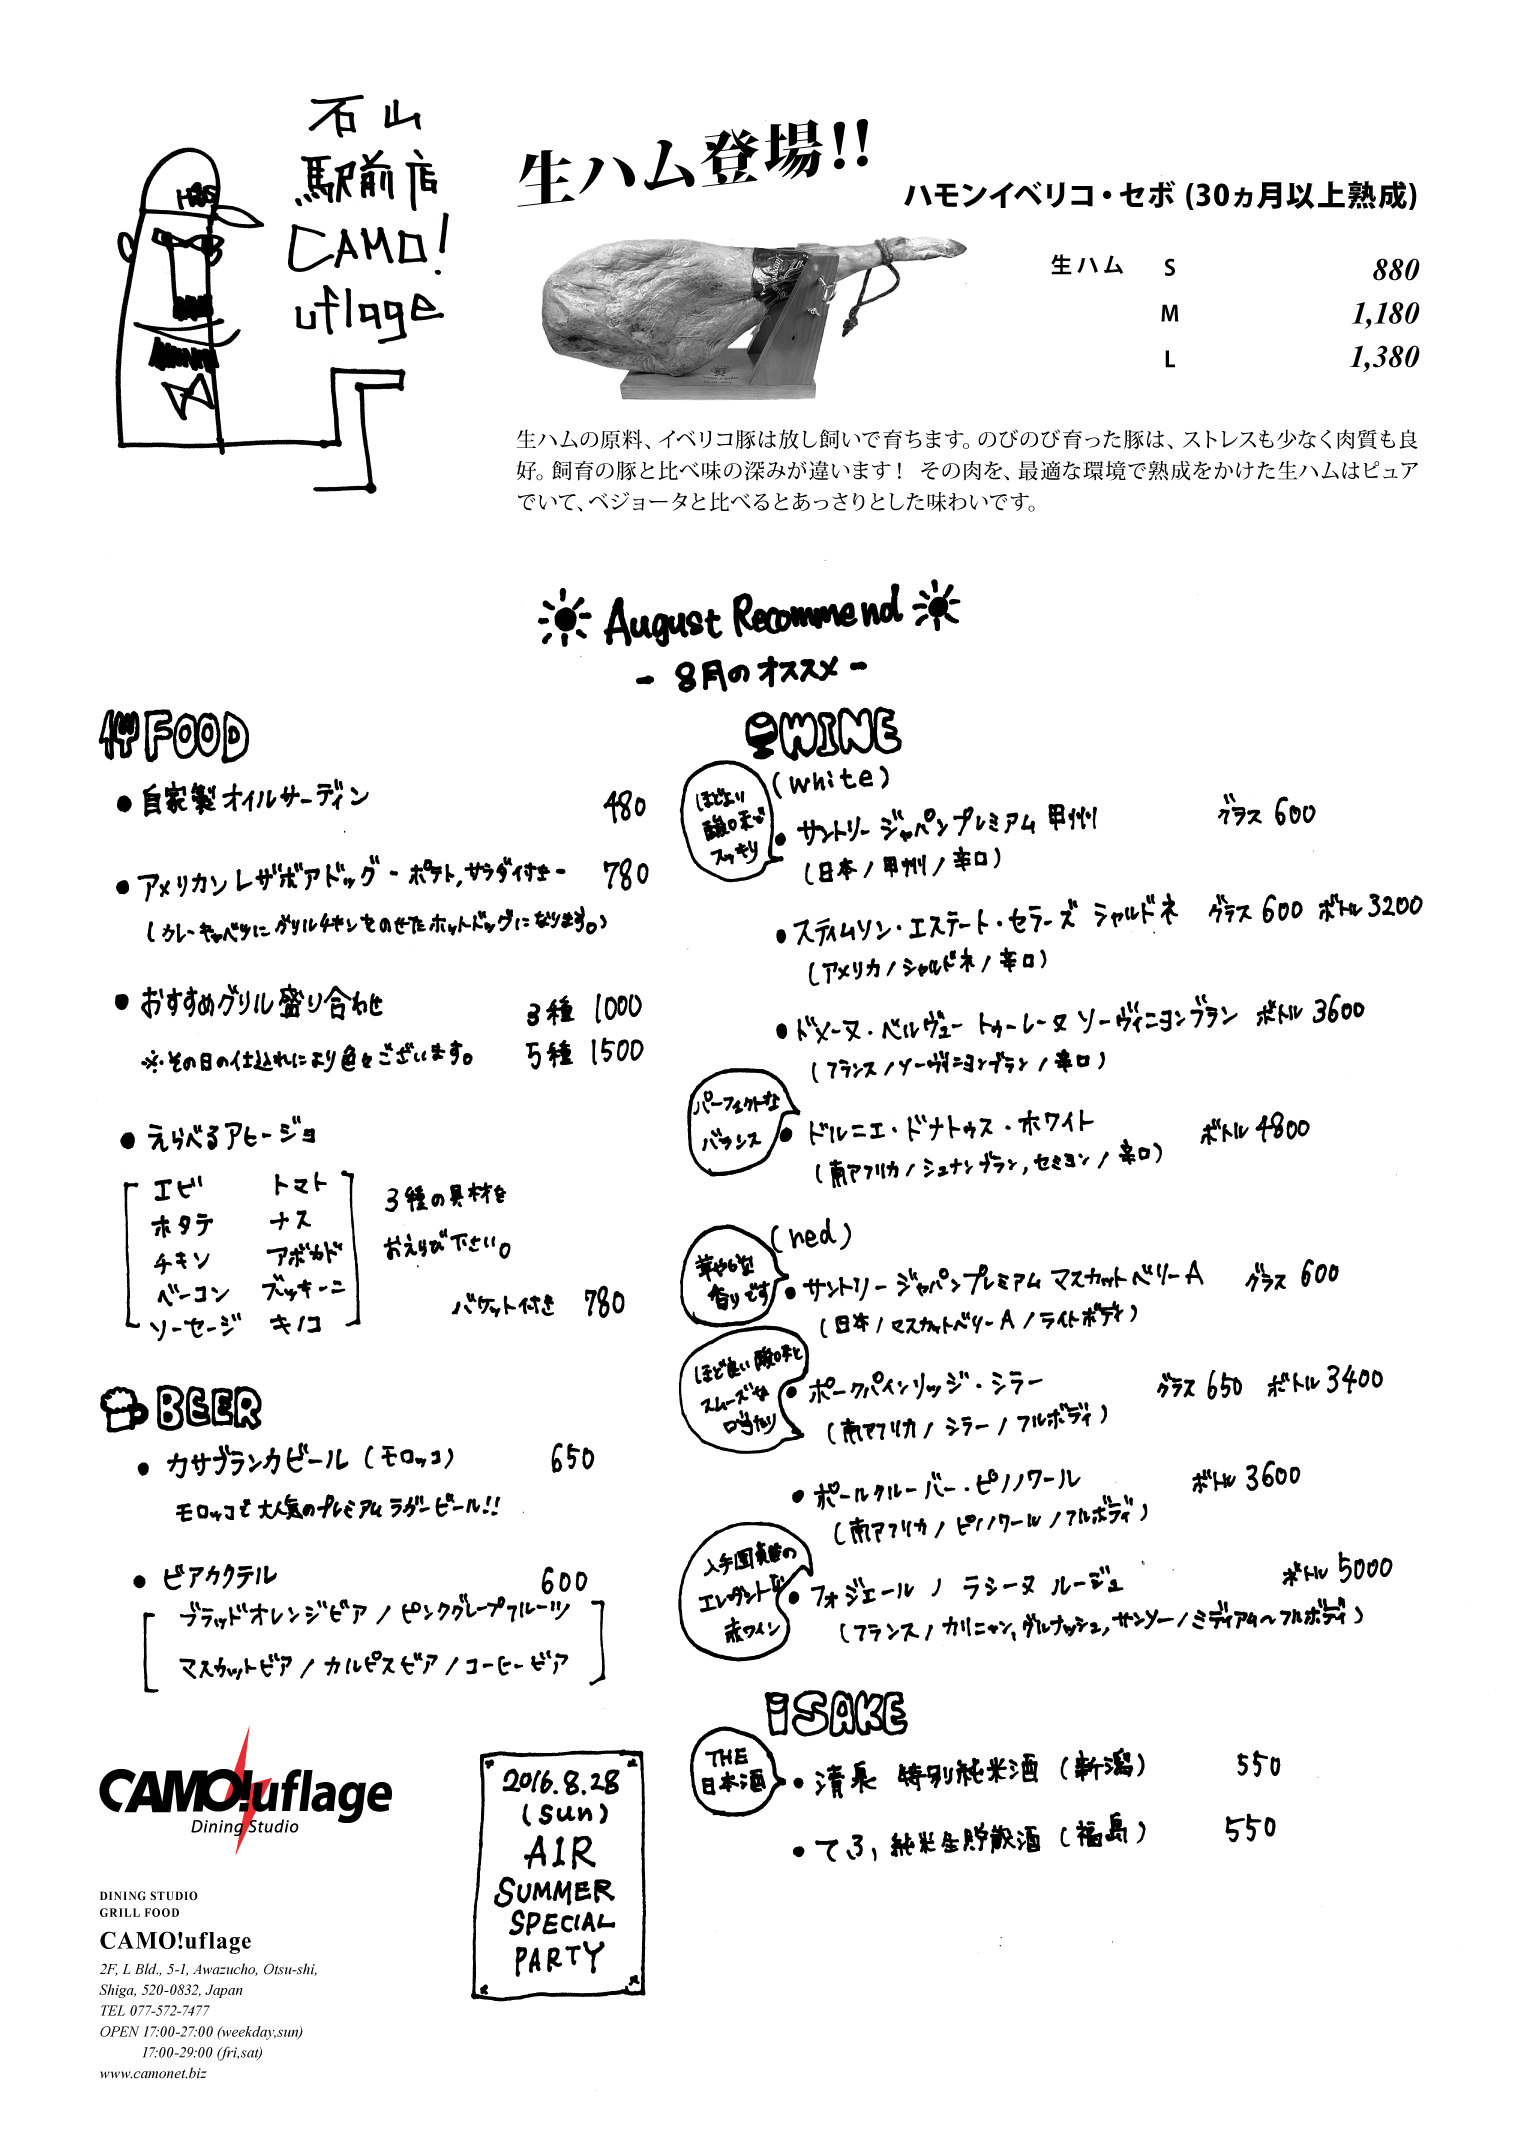 石山
駅前店
CAMO!
uflage
生ハム登場!!
ハモンイベリコ・セボ (30ヵ月以上熟成)
生ハム S 880
M 1,180
L 1,380
生ハムの原料、イベリコ豚は放し飼いで育ちます。のびのび育った豚は、ストレスも少なく肉質も良
好。飼育の豚と比べ味の深みが違います! その肉を、最適な環境で熟成をかけた生ハムはピュア
でいて、ベジョータと比べるとあっさりとした味わいです。
August Recommend
- 8月のオススメ -
FOOD
● 自家製オイルサーディン 480
● アメリカンレザボアドッグ - ポテト,サラダ付き - 780
(カレーキャベツにグリルチキンをのせたホットドッグになります。)
● おすすめグリル盛り合わせ 3種 1000
※その日の仕込れにより色々ございます。 5種 1500
● えらべるアヒージョ
エビ トマト
ホタテ ナス
チキン アボカド
ベーコン ズッキーニ
ソーセージ キノコ
3種の具材を
おえらび下さい。
バケット付き 780
BEER
● カサブランカビール (モロッコ) 650
モロッコで大人気のプレミアムラガービール!!
● ビアカクテル 600
ブラッドオレンジビア / ピンクグレープフルーツ
マスカットビア / カルピスビア / コーヒービア
WINE
(white)
ほどよい
酸味で
スッキリ
● サントリー ジャパンプレミアム 甲州 グラス 600
(日本 / 甲州 / 辛口)
● スティムソン・エステート・セラーズ シャルドネ グラス 600 ボトル 3200
(アメリカ / シャルドネ / 辛口)
● ドメーヌ・ベルヴュー トゥーレーヌ ソーヴィニヨンブラン ボトル 3600
(フランス / ソーヴィニヨンブラン / 辛口)
パーフェクトな
バランス
● ドルニエ・ドナトゥス・ホワイト ボトル 4800
(南アフリカ / シュナンブラン, セミヨン / 辛口)
(red)
華やかな
香りです
● サントリー ジャパンプレミアム マスカットベリーA グラス 600
(日本 / マスカットベリーA / ライトボディ)
ほど良い酸味と
スムーズな
口当たり
● ポークパインリッジ・シラー グラス 650 ボトル 3400
(南アフリカ / シラー / フルボディ)
● ポールクルーバー・ピノノワール ボトル 3600
(南アフリカ / ピノノワール / フルボディ)
入手困難の
エレガントな
赤ワイン
● フォジェール / ラシーヌ ルージュ ボトル 5000
(フランス / カリニャン, グルナッシュ, サンソー / ミディアム〜フルボディ)
SAKE
THE
日本酒
● 清泉 特別純米酒 (新潟) 550
● てふ, 純米生貯蔵酒 (福島) 550
CAMO!uflage
Dining Studio
2016.8.28
(sun)
AIR
SUMMER
SPECIAL
PARTY
DINING STUDIO
GRILL FOOD
CAMO!uflage
2F, L Bld., 5-1, Awazucho, Otsu-shi,
Shiga, 520-0832, Japan
TEL 077-572-7477
OPEN 17:00-27:00 (weekday,sun)
17:00-29:00 (fri,sat)
www.camonet.biz